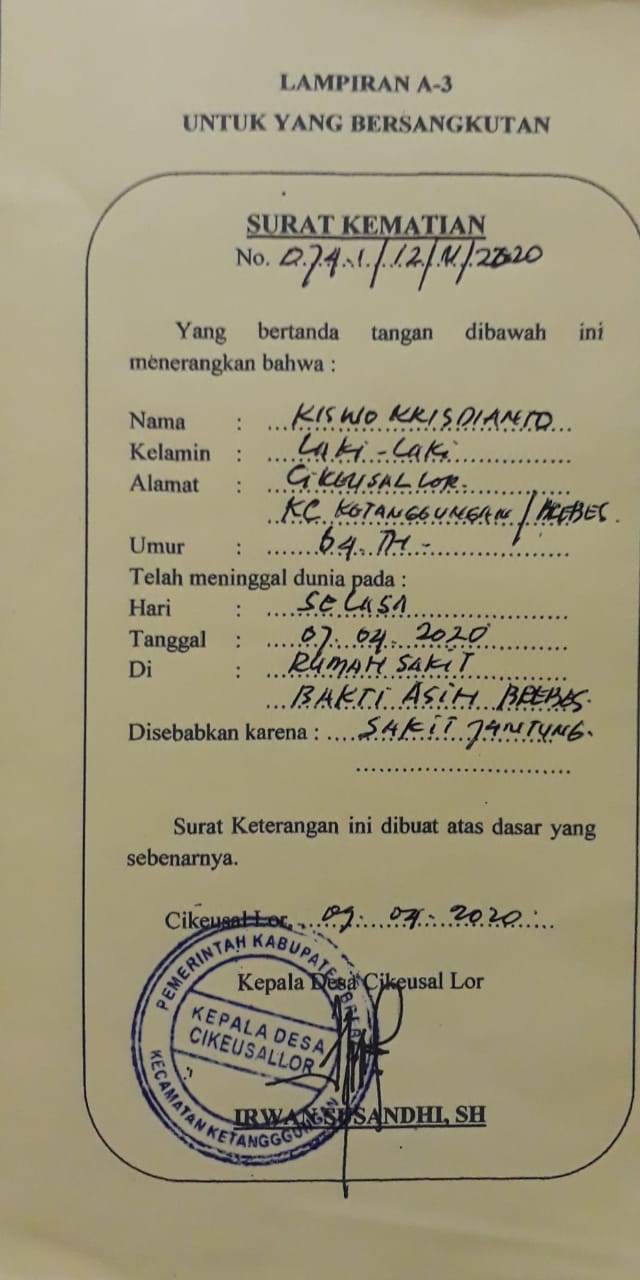 LAMPIRAN A-3
UNTUK YANG BERSANGKUTAN
SURAT KEMATIAN
No. 074.1/12/IV/2020
Yang bertanda tangan dibawah ini
menerangkan bahwa :
Nama : KISWO KRISDIANTO
Kelamin : Laki-Laki
Alamat : CIKEUSAL LOR.
KC KETANGGUNGAN / BREBES.
Umur : 64 TH -
Telah meninggal dunia pada :
Hari : SELASA
Tanggal : 07. 04. 2020
Di : RUMAH SAKIT
BAKTI ASIH BREBES.
Disebabkan karena : SAKIT JANTUNG.
Surat Keterangan ini dibuat atas dasar yang
sebenarnya.
Cikeusal Lor, 09. 04. 2020
Kepala Desa Cikeusal Lor
PEMERINTAH KABUPATEN BREBES
KEPALA DESA
CIKEUSALLOR
KECAMATAN KETANGGGUNGAN
IRWAN SUSANDHI, SH